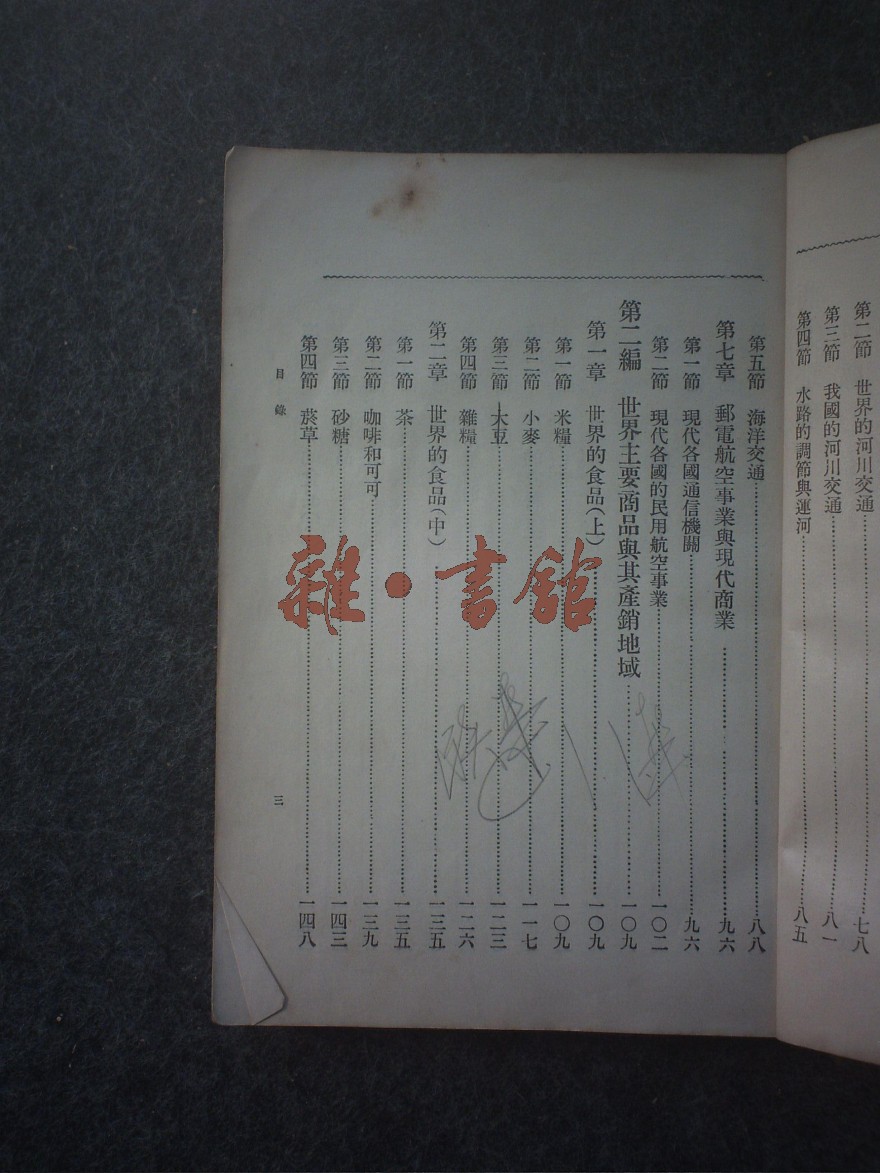 第二節　世界的河川交通……七八
第三節　我國的河川交通……八一
第四節　水路的調節與運河……八五
第五節　海洋交通……八八
第七章　郵電航空事業與現代商業……九六
第一節　現代各國通信機關……九六
第二節　現代各國的民用航空事業……一〇二
第二編　世界主要商品與其產銷地域……一〇九
第一章　世界的食品(上)……一〇九
第一節　米糧……一〇九
第二節　小麥……一一七
第三節　大豆……一二三
第四節　雜糧……一二六
第二章　世界的食品(中)……一三五
第一節　茶……一三五
第二節　咖啡和可可……一三九
第三節　砂糖……一四三
第四節　菸草……一四八
目錄
三
雜·書館